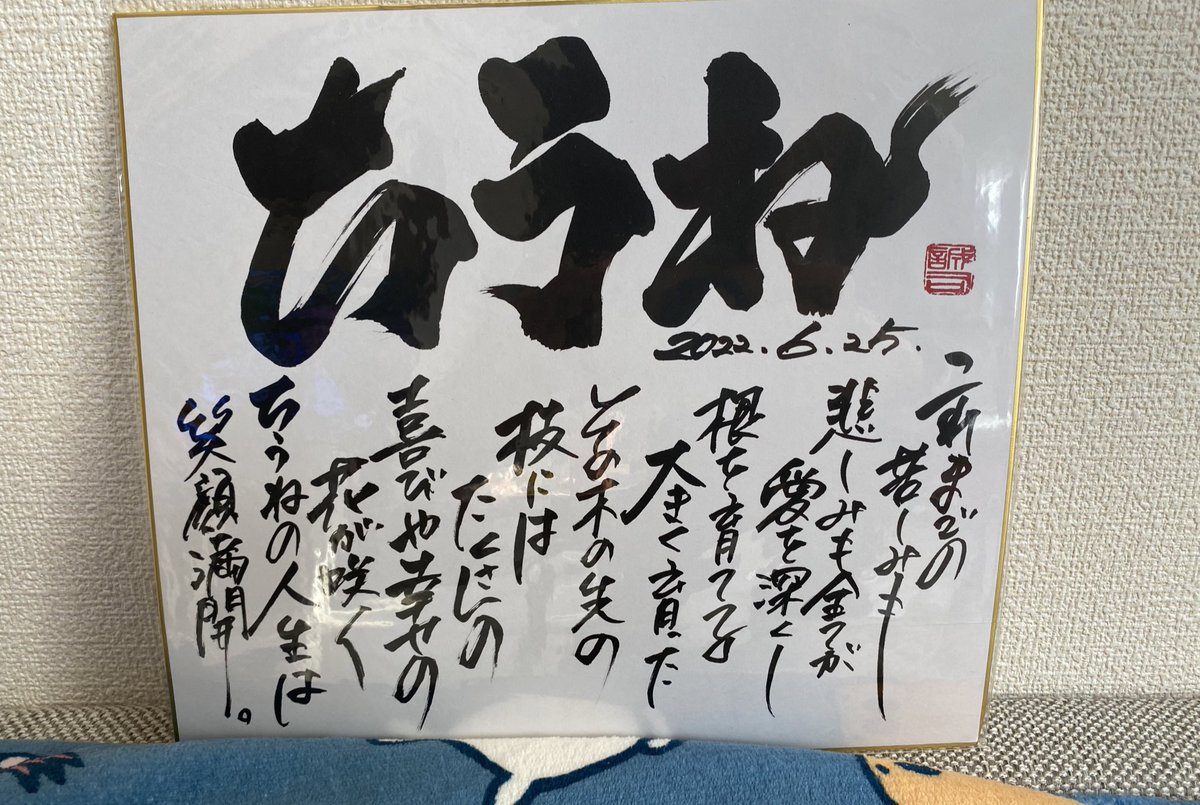 ちうね
誠司
2022.6.25.
これまでの
苦しみも
悲しみも全てが
愛を深くし
根を育てて
大きく育った
その木の先の
枝には
たくさんの
喜びや幸せの
花が咲く
ちうねの人生は
笑顔満開。